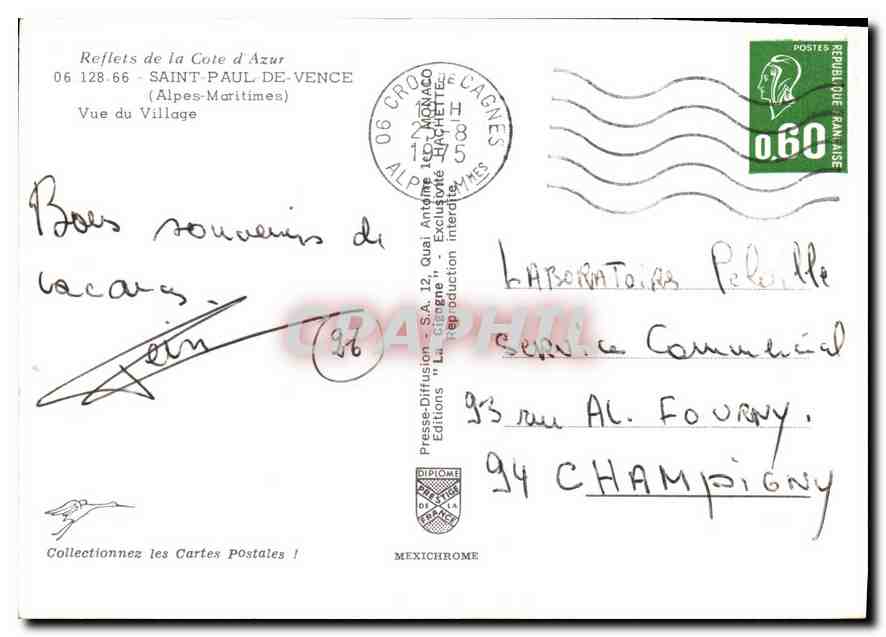 Reflets de la Cote d'Azur
06 128-66 - SAINT-PAUL-DE-VENCE
(Alpes-Maritimes)
Vue du Village
Bons souvenirs de
vacances.
26
Collectionnez les Cartes Postales !
06 CROS DE CAGNES
1975
Presse-Diffusion - S.A. 12, Quai Antoine 1er - MONACO
Editions "La Cigogne" - Exclusivité HACHETTE
Reproduction interdite
DIPLOME
PRESTIGE
DE LA
FRANCE
MEXICHROME
POSTES
REPUBLIQUE FRANÇAISE
0,60
LABORATOIRES
Service Commercial
93 rue AL. FOURNY.
94 CHAMPIGNY
CPAPHIL